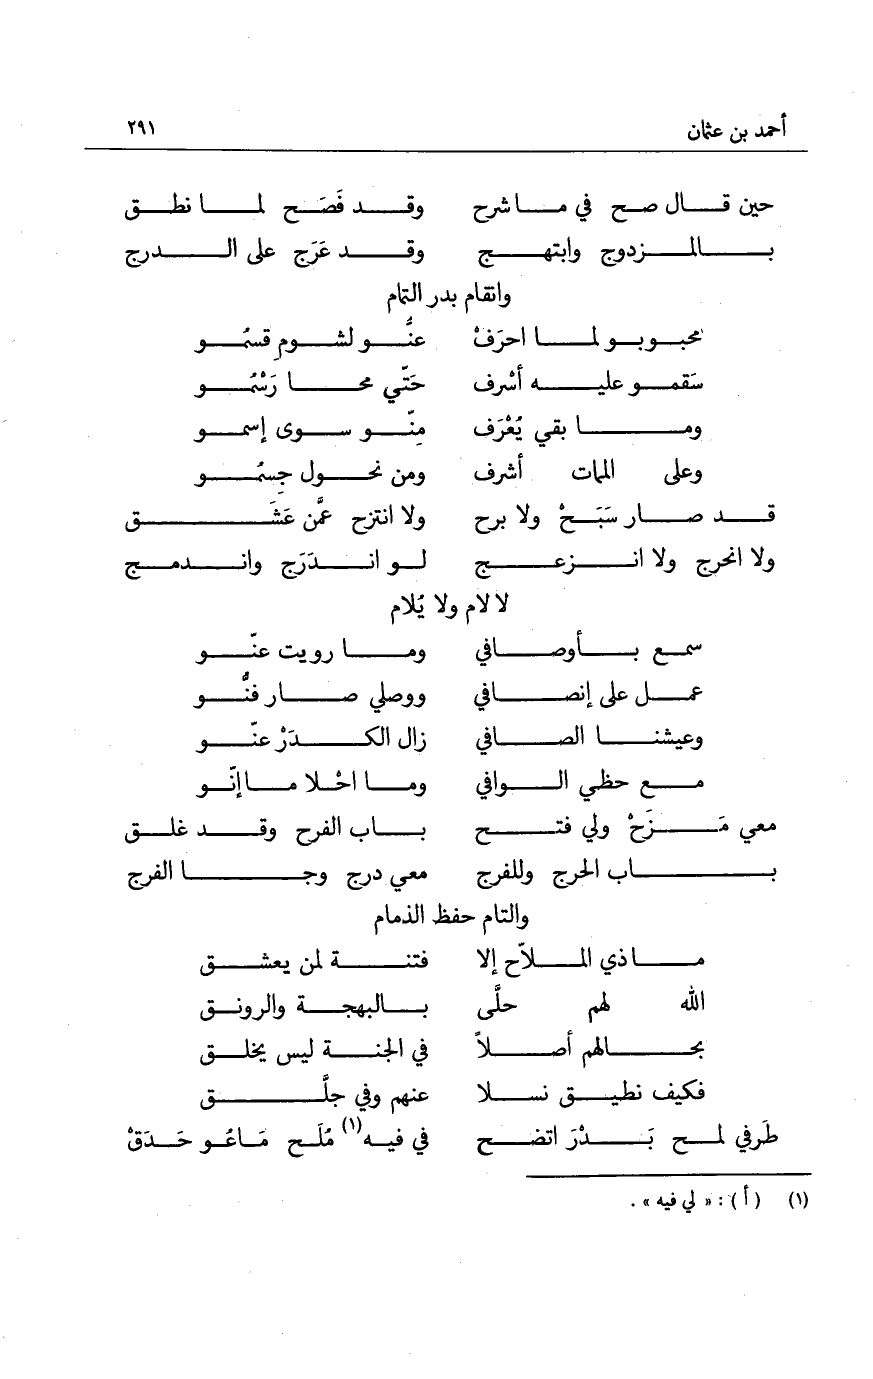 أحمد بن عثمان ٢٩١
حين قال صح في ما شرح وقد فَصَح لما نطق
بالمزدوج وابتهج وقد عَرَج على الدرج
وانقام بدر التمام
محبوبو لما احرَفْ عنُّو لشوم قسمُو
سَقمو عليه أشرف حَتّي محا رَسْمُو
وما بقي يُعْرَف مِنّو سوى إسمو
وعلى الممات أشرف ومن نحول جِسمُو
قد صار سَبَحْ ولا برح ولا انتزح عمَّن عَشَق
ولا انحرج ولا انزعج لو اندَرَج واندمج
لا لام ولا يُلام
سمع بأوصافي وما رويت عنّو
عمل على إنصافي ووصلي صار فنُّو
وعيشنا الصافي زال الكدَرْ عنّو
مع حظي الوافي وما احْلا ما إنّو
معي مَزَحْ ولي فتح باب الفرح وقد غلق
باب الحرج وللفرج معي درج وجا الفرج
والتام حفظ الذمام
ما ذي الملاّح إلا فتنة لمن يعشق
الله لهم حلَّى بالبهجة والرونق
بحالهم أصلاً في الجنة ليس يخلق
فكيف نطيق نسلا عنهم وفي جلَّق
طَرفي لمح بَدْرَ اتضح في فيه(١) مُلَح مَاعُو حَدَقْ
(١) (أ) : « لي فيه » .